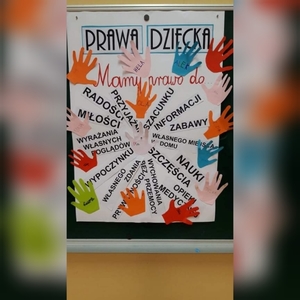 PRAWA DZIECKA
Mamy prawo do
RADOŚCI
PRZYJAŹNI
SZACUNKU
INFORMACJI
MIŁOŚCI
ZABAWY
WYRAŻANIA
WŁASNYCH
POGLĄDÓW
WŁASNEGO MIEJSCA
DOMU
WYPOCZYNKU
SZCZĘŚCIA
NAUKI
WŁASNEGO
ZDANIA
WYCHOWANIA
BEZ
PRZEMOCY
OPIEKI